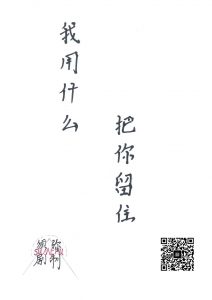 我用什么
把你留住